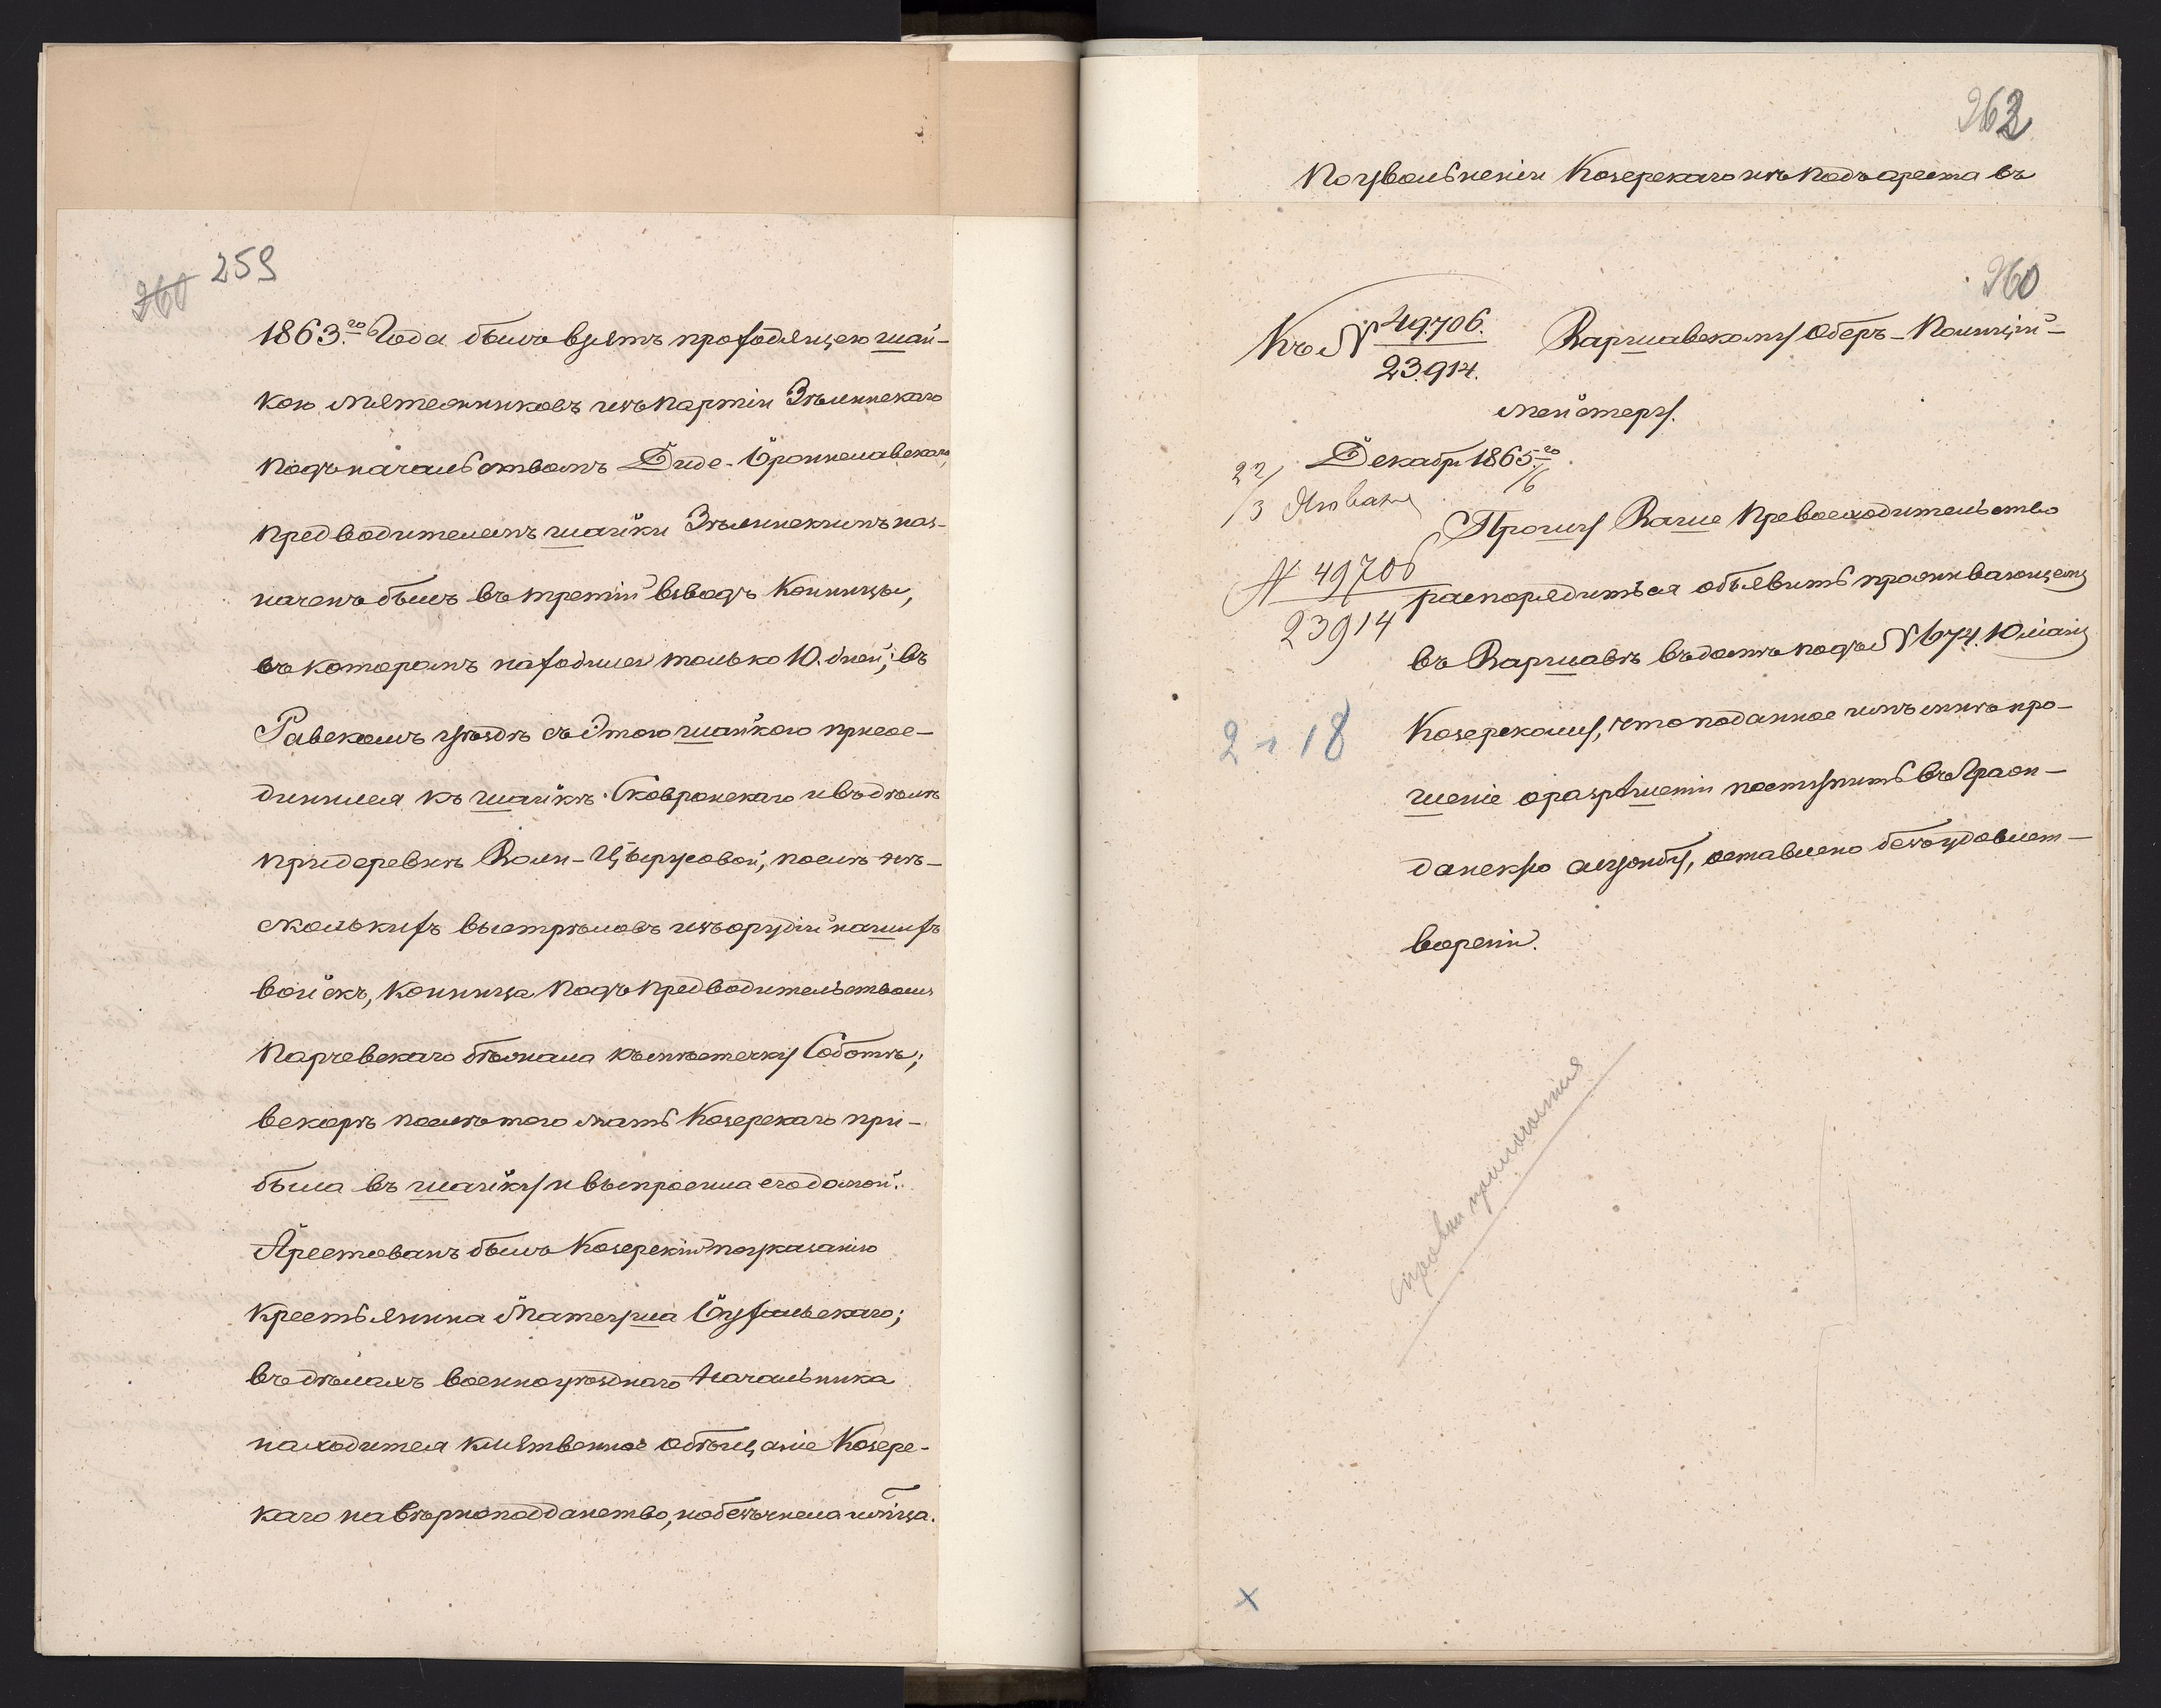 259
260
1863.го Года былъ взятъ проходящею шай-
кою мятежниковъ изъ партіи Зѣлинскаго
подъ начальствомъ Диде-Брониславскаго,
предводителемъ шайки Зѣлинскимъ наз-
наченъ былъ въ третій взводъ Конницы,
въ которомъ находился только 10. дней; въ
Равскомъ уѣздѣ съ этою шайкою присое-
динился къ шайкѣ Сковронскаго и въ дѣлѣ
при деревнѣ Воли-Цырусовой, послѣ нѣ-
сколькихъ выстрѣловъ изъ орудій нашихъ
войскъ, Конница подъ предводительствомъ
Парчевскаго бѣжала къ мѣстечку Соботѣ;
вскорѣ послѣ того мать Козерскаго при-
была въ шайку и выпросила его домой.
Арестованъ былъ Козерскій по указанію
Крестьянина Матеуша Бухальскаго;
въ дѣлахъ военно уѣзднаго Начальника
находится клятвенное обѣщаніе Козерс-
каго на вѣрноподданство, но безъ числа и мѣсяца.
262
По увольненіи Козерскаго изъ подъ ареста въ
260
Къ № 49.706.
23.914.
Варшавскому Оберъ-Полицій-
мейстеру.
Декабря 1865.го
22/3 Января /6
Прошу Ваше Превосходительство
№ 49706
23914
распорядиться объявить проживающему
въ Варшавѣ въ домѣ подъ № 674. Юліану
2 18
Козерскому, что поданное имъ мнѣ про-
шеніе о разрѣшеніи поступить въ Граж-
данскую службу, оставлено безъ удовлет-
воренія.
х